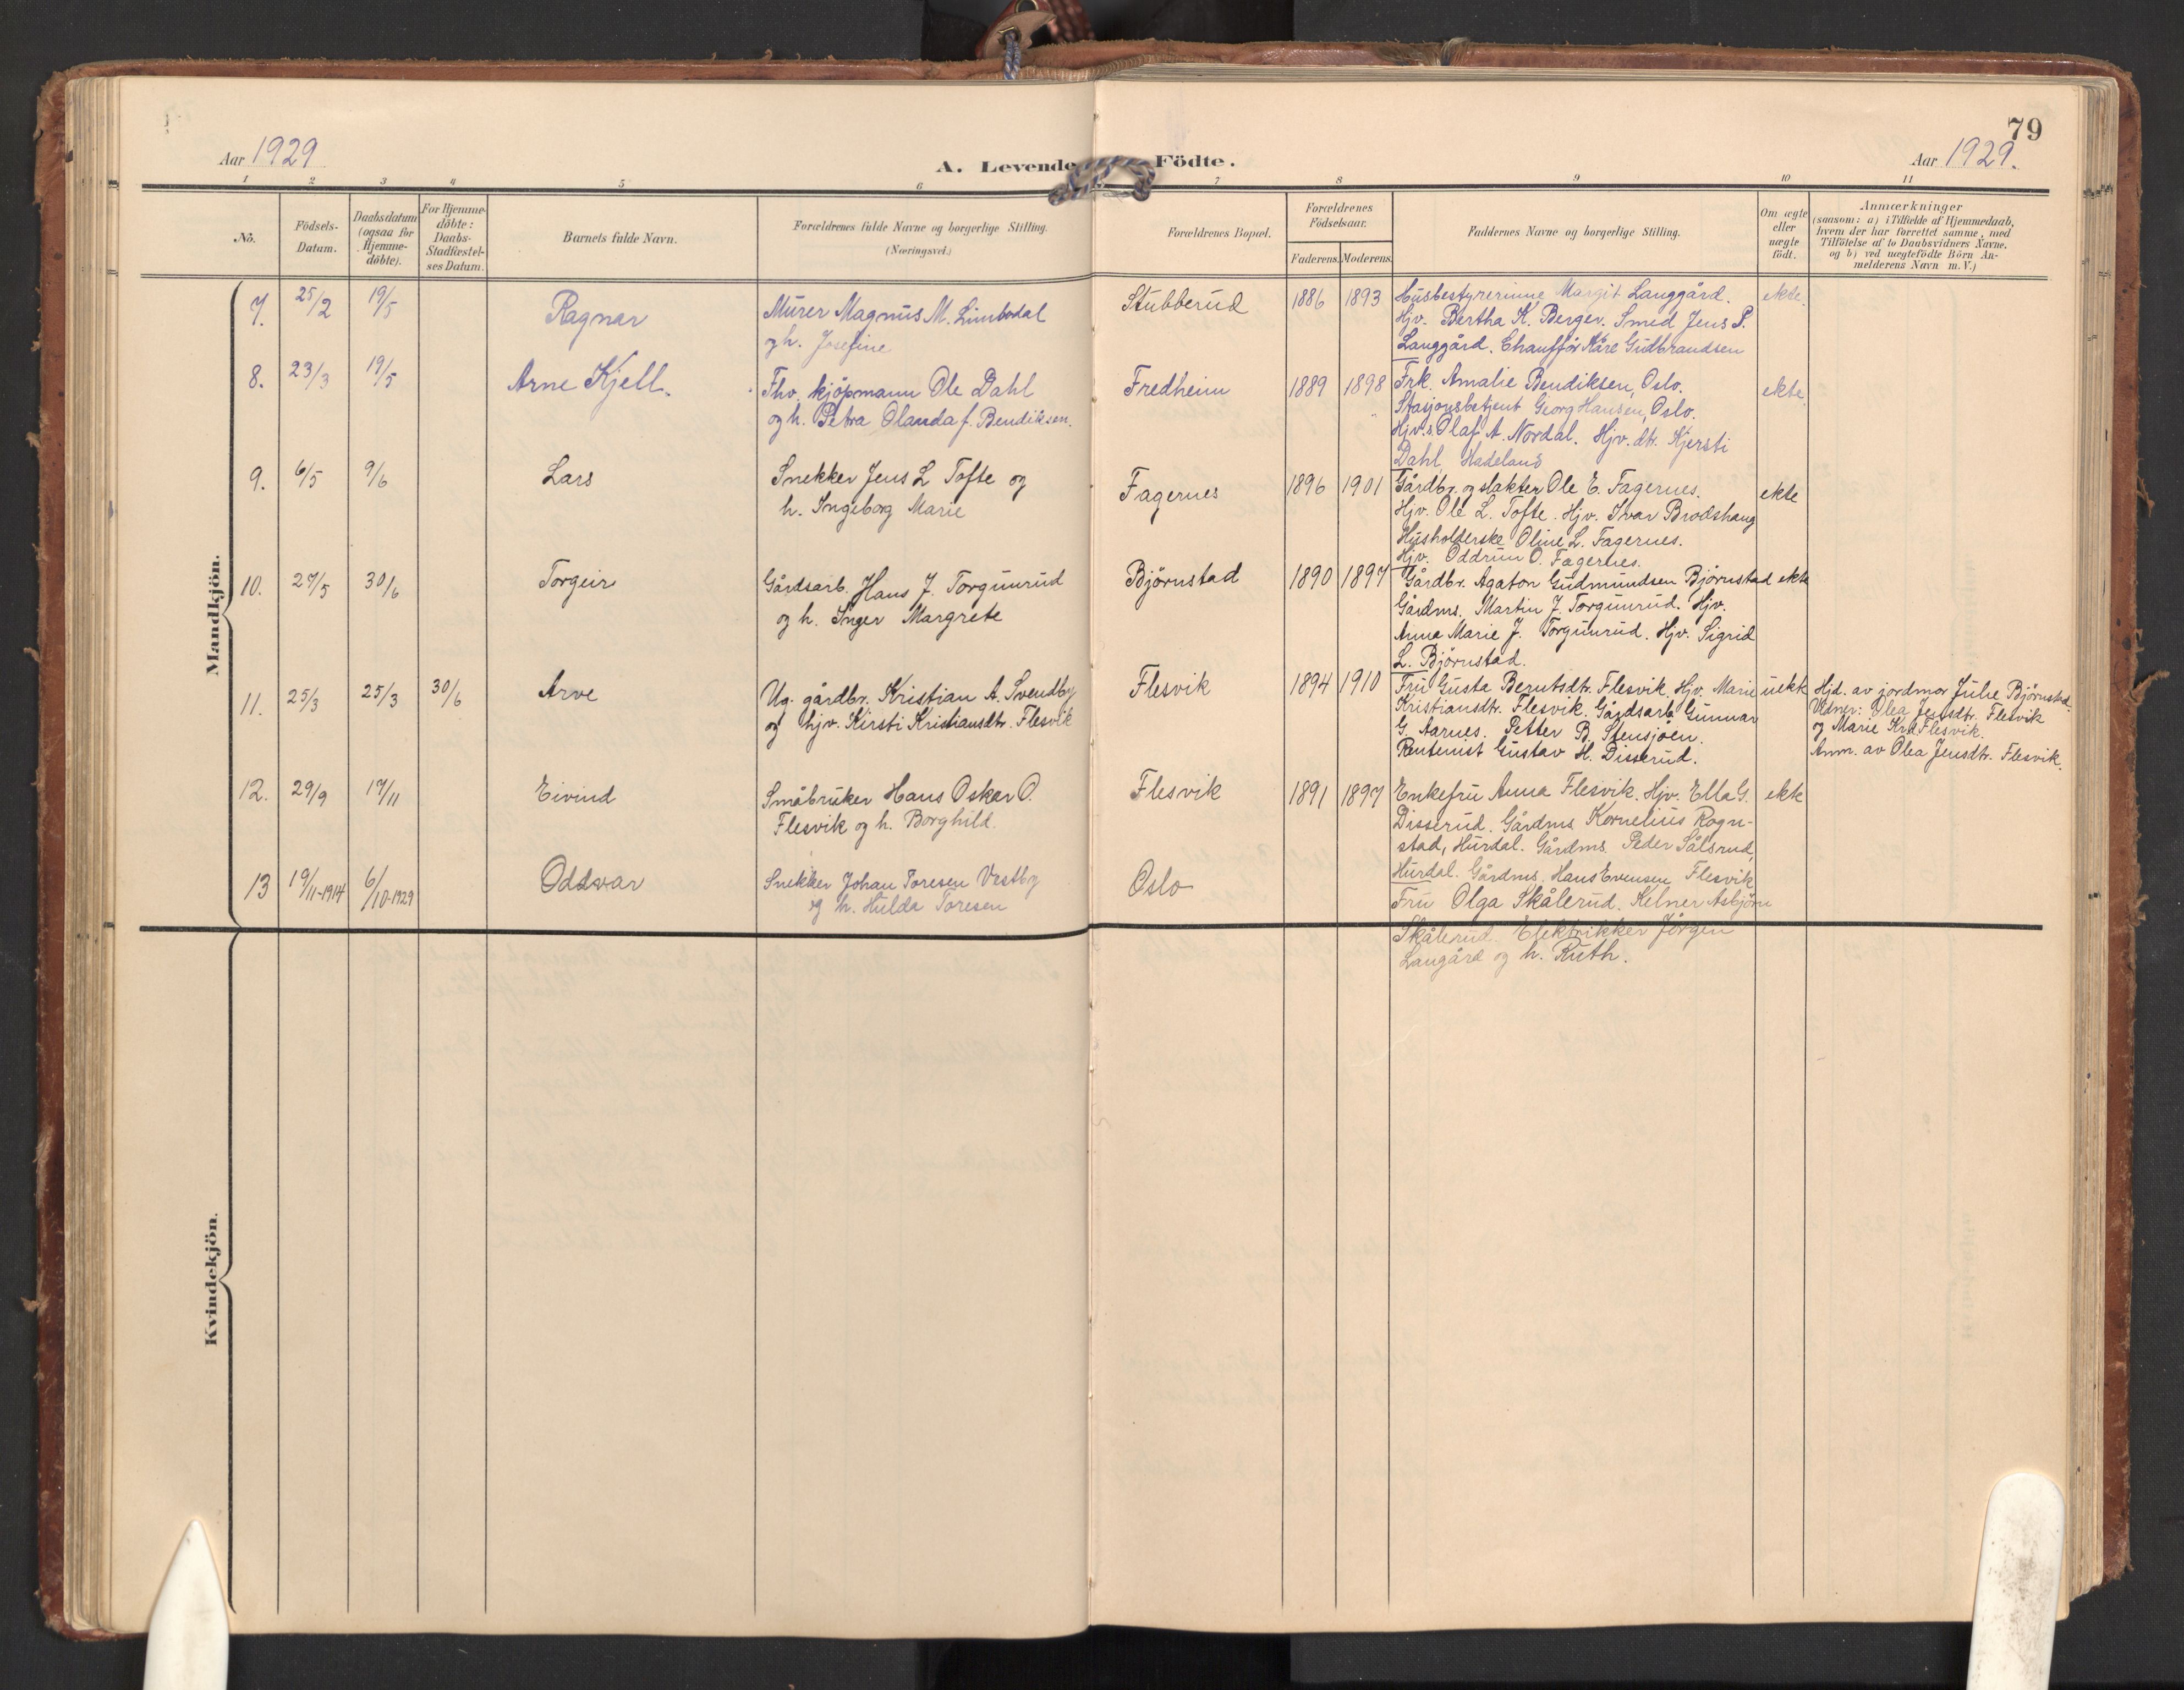 79
Aar 1929
A. Levende Födte.
Aar 1929.
1 2 3 4 5 6 7 8 9 10 11
Nö.
Födsels-
Datum.
Daabsdatum
(ogsaa for
Hjemme-
döbte).
For Hjemme-
döbte:
Daabs-
Stadfæstel-
ses Datum.
Barnets fulde Navn.
Forældrenes fulde Navne og borgerlige Stilling.
(Næringsvei.)
Forældrenes Bopæl.
Forældrenes
Födselsaar.
Faderens. Moderens.
Faddernes Navne og borgerlige Stilling.
Om ægte
eller
uægte
født.
Anmærkninger
(saasom: a) i Tilfælde af Hjemmedaab,
hvem der har forrettet samme, med
Tilföielse af to Daabsvidners Navne,
og b) ved uægtefödte Börn An-
melderens Navn m. V.)
Mandkjön.
7. 25/2 19/5 Ragnar
Murer Magnus M. Limbodal
og h. Josefine
Stubberud 1886 1893
Husbestyrerinne Margit Langgård.
Hjv. Bertha K. Berger. Smed Jens P.
Langgård. Chauffør Kåre Gudbrandsen
ekte.
8. 23/3 19/5 Arne Kjell.
Fhv. kjöpmann Ole Dahl
og h. Petra Olanda f. Bendiksen.
Fredheim 1889 1898
Frk. Amalie Bendiksen, Oslo.
Stasjonsbetjent Georg Hansen, Oslo.
Hjv.s. Olaf A. Nordal. Hjv. dtr. Kjersti
Dahl, Hadeland
ekte.
9. 6/5 9/6 Lars
Snekker Jens L Tofte og
h. Ingeborg Marie
Fagernes 1896 1901
Gårdbr. og slakter Ole E. Fagernes.
Hjv. Ole L. Tofte. Hjv. Ivar Brodshaug
Husholderske Oline L. Fagernes.
Hjv. Oddrun O. Fagernes.
ekte
10. 27/5 30/6 Torgeir
Gårdsarb. Hans J. Torgunrud
og h. Inger Margrete
Björnstad 1890 1897
Gårdbr. Agaton Gudmundsen Björnstad
Gårdms. Martin J. Torgunrud. Hjv.
Anna Marie J. Torgunrud. Hjv. Sigrid
L. Björnstad.
ekte
11. 25/3 25/3 30/6 Arve
Ug. gårdbr. Kristian A. Svendby
og hjv. Kirsti Kristiansdtr. Flesvik
Flesvik 1894 1910
Fru Gusta Berntsdtr. Flesvik. Hjv. Marie
Kristiansdtr. Flesvik. Gårdsarb. Gunnar
G. Aarnes. Petter B. Stensjöen.
Rentenist Gustav H. Disserud.
uekte
Hjd. av jordmor Julie Björnstad.
Vidner: Olea Jensdtr. Flesvik
og Marie Krd Flesvik.
Anm. av Olea Jensdtr. Flesvik.
12. 29/9 17/11 Eivind
Småbruker Hans Oskar O.
Flesvik og h. Borghild.
Flesvik 1891 1897
Enkefru Anna Flesvik. Hjv. Ella G.
Disserud. Gårdms. Kornelius Rogn-
stad, Hurdal. Gårdms. Peder Sålsrud,
Hurdal. Gårdms. Hans Evensen Flesvik
ekte
13 19/11-1914 6/10-1929 Oddvar
Snekker Johan Toresen Vestby
og h. Hulda Toresen
Oslo
Fru Olga Skålerud. Kelner Asbjörn
Skålerud. Elektrikker Jörgen
Langård og h. Ruth.
Kvindekjön.